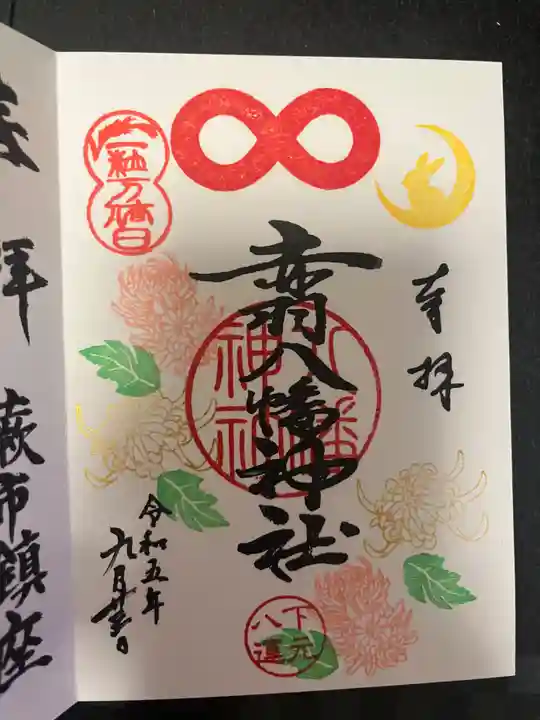 奉拝
赤羽八幡神社
八幡神社
令和五年
九月
日
一粒万倍日
下元
八運
拝 萩市鎮座